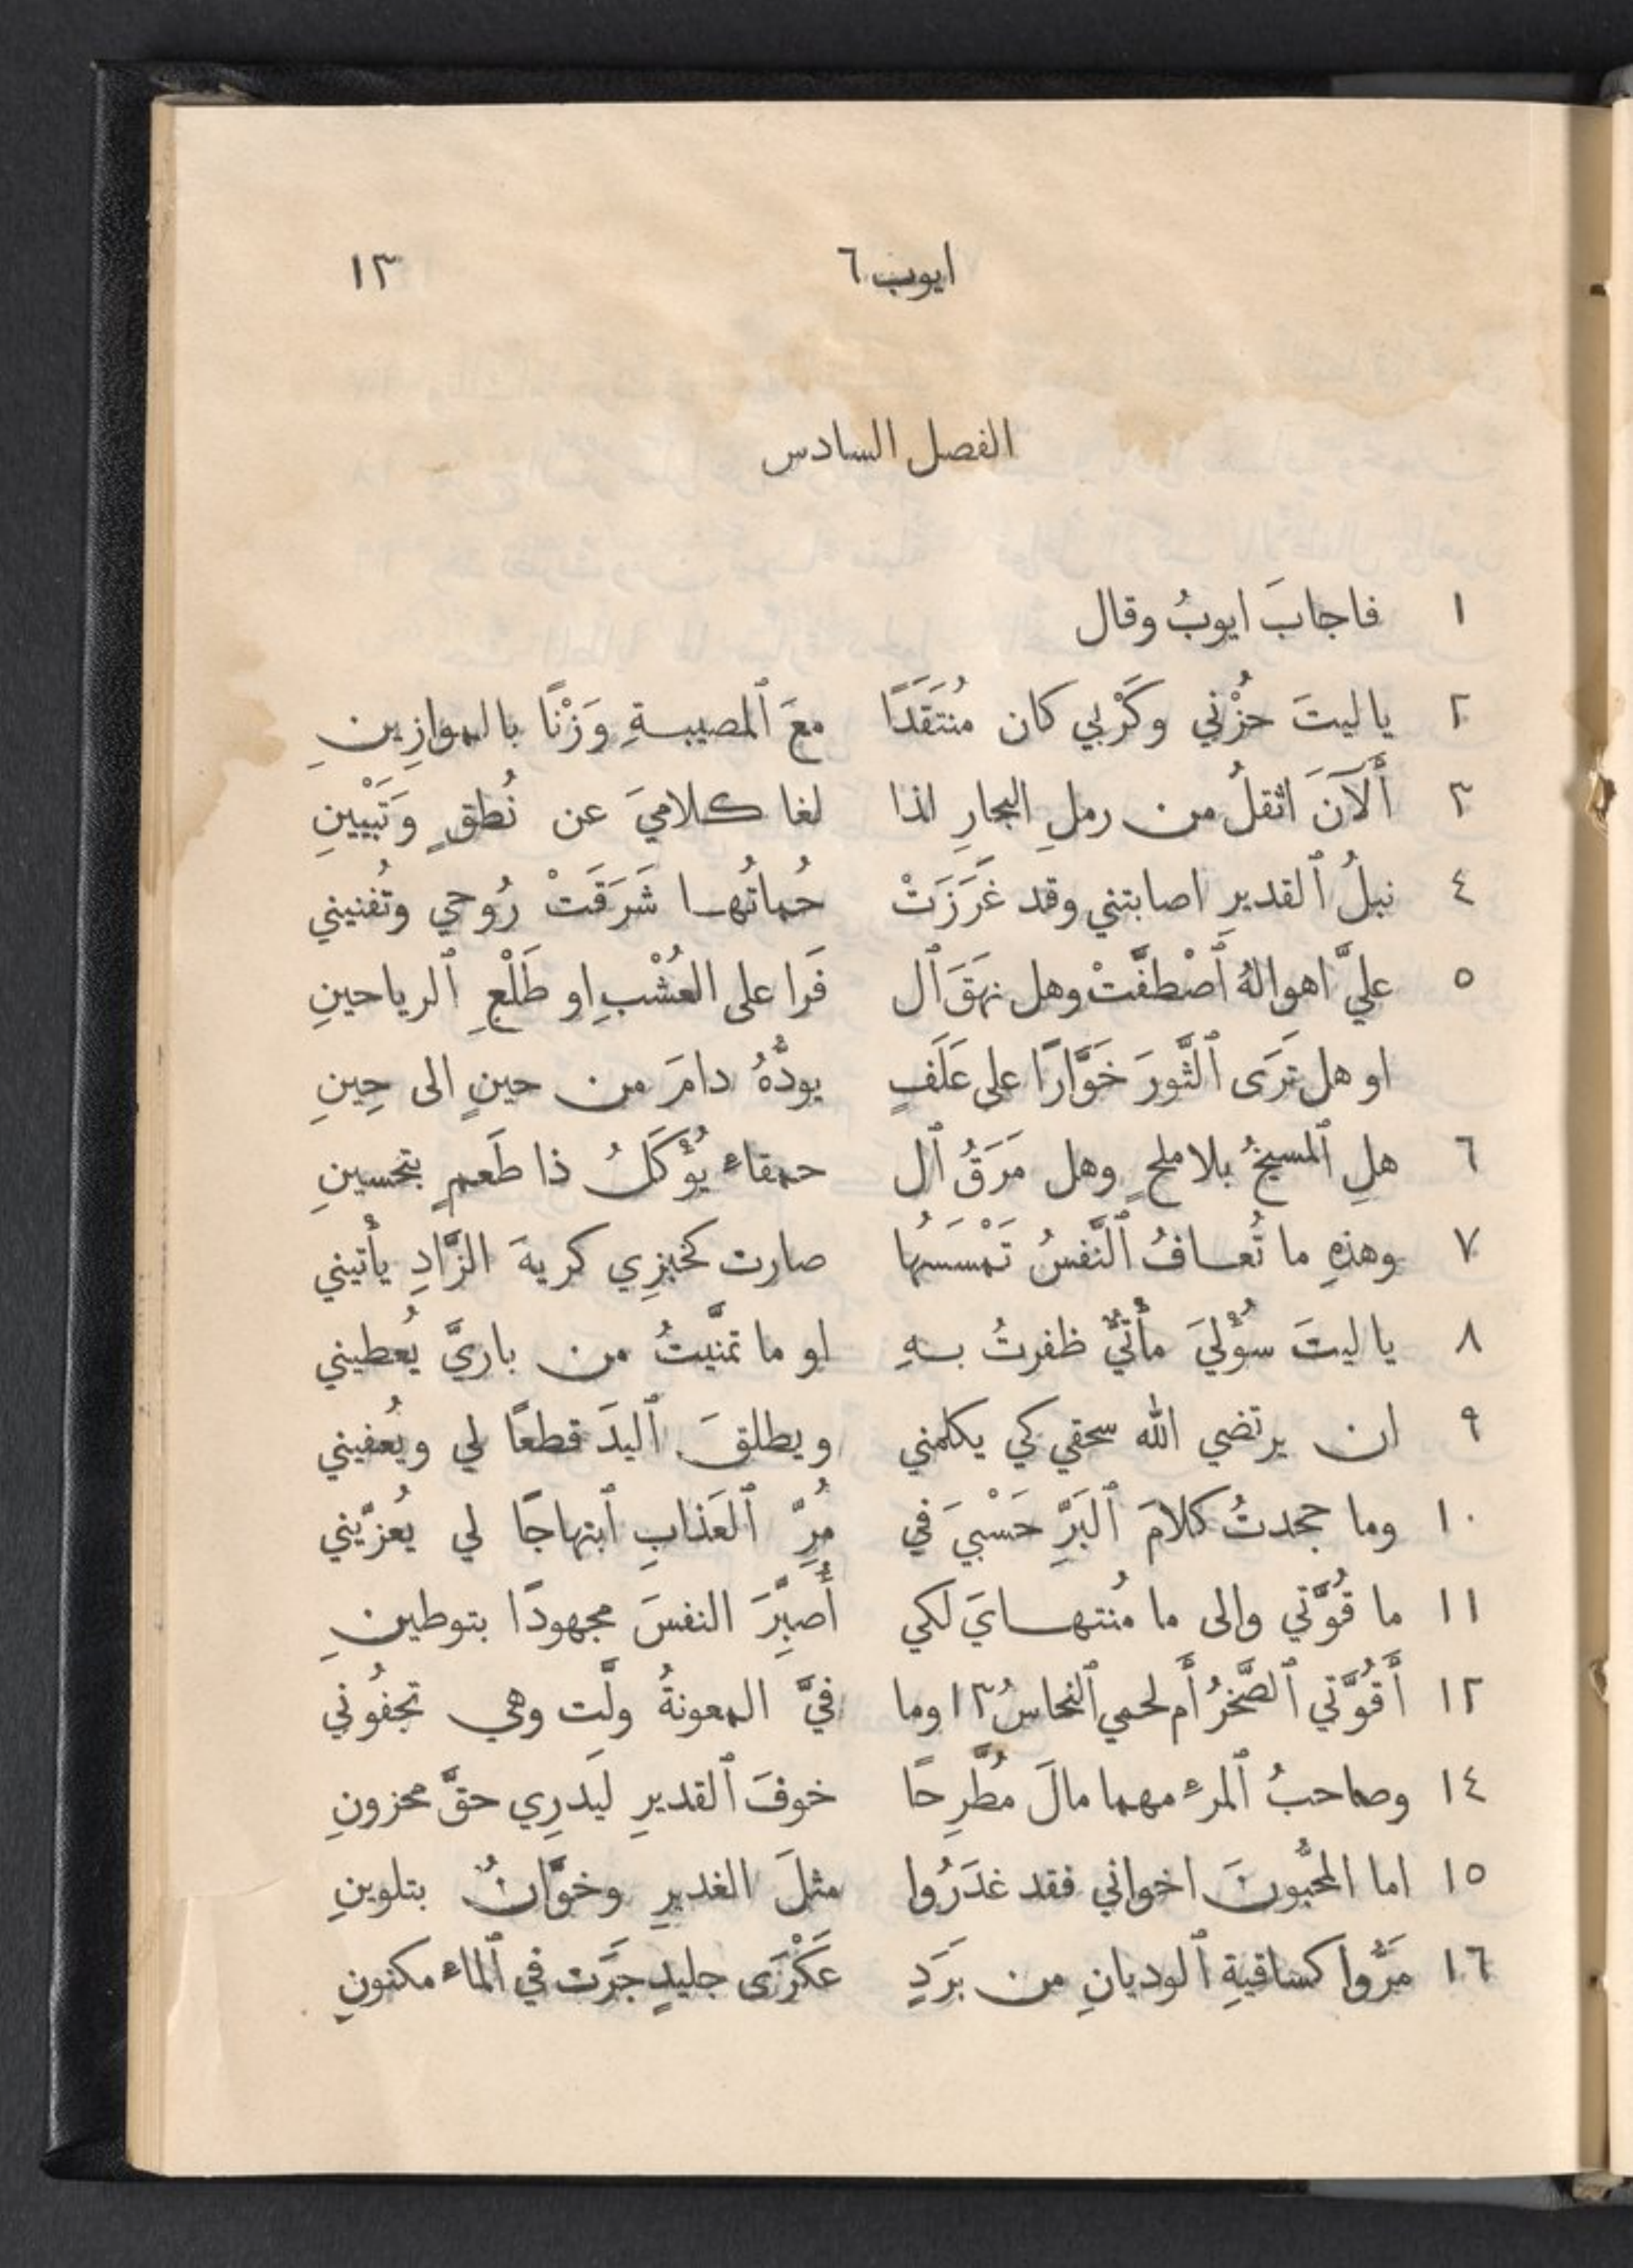 ايوب ٦ ١٣
الفصل السادس
١ فاجابَ ايوبُ وقال
٢ يا ليتَ حُزْني وكَرْبي كان مُنتَقَدًا معَ ٱلمصيبةِ وَزْنًا بالموازِينِ
٣ أَلآنَ اثقلُ من رملِ البحارِ لذا لغا كلاميَ عن نُطقٍ وَتَبْيينِ
٤ نبلُ ٱلقديرِ اصابتني وقد غَرَزَتْ حُماتُها شَرَقَتْ رُوحي وتُفنيني
٥ عليَّ اهوالهُ ٱصْطفَّتْ وهل نهَقَ ٱل فَرا على العُشْبِ او طَلْعِ ٱلرياحينِ
او هل تَرَى ٱلثَّورَ خَوَّارًا على عَلَفٍ يودُّهُ دامَ من حينٍ الى حِينِ
٦ هلِ ٱلمسيخُ بلا ملحٍ وهل مَرَقُ ٱل حمقاء يُؤْكَلُ ذا طَعمٍ بتحسينِ
٧ وهذهِ ما تُعافُ ٱلنَّفسُ تَمْسَسُها صارت كخبزِي كريهَ الزَّادِ يأتيني
٨ يا ليتَ سُؤْليَ مأتيٌّ ظفرتُ بهِ او ما تمنَّيتُ من باريَّ يُعطيني
٩ ان يرتضي الله سحقي كي يكلمني ويطلقَ ٱليدَ قطعًا لي ويُعفيني
١٠ وما جحدتُ كلامَ ٱلبَرِّ حَسْبيَ في مُرِّ ٱلعَذابِ ٱبتهاجًا لي يُعزّيني
١١ ما قُوَّتي والى ما مُنتهايَ لكي أُصبِّرَ النفسَ مجهودًا بتوطينِ
١٢ أَقُوَّتي ٱلصَّخرُ أَم لحمي ٱلنحاسُ ١٣ وما فيَّ المعونةُ ولَّت وهي تجفُوني
١٤ وصاحبُ ٱلمرءِ مهما مالَ مُطَّرِحًا خوفَ ٱلقديرِ ليَدرِي حقَّ محزونِ
١٥ اما المحبُّونَ اخواني فقد غدَرُوا مثلَ الغديرِ وخوَّانٌ بتلوينِ
١٦ مَرُّوا كساقيةِ ٱلوديانِ من برَدٍ عَكْرَى جليدٍ جَرَت في ٱلماء مكنونِ